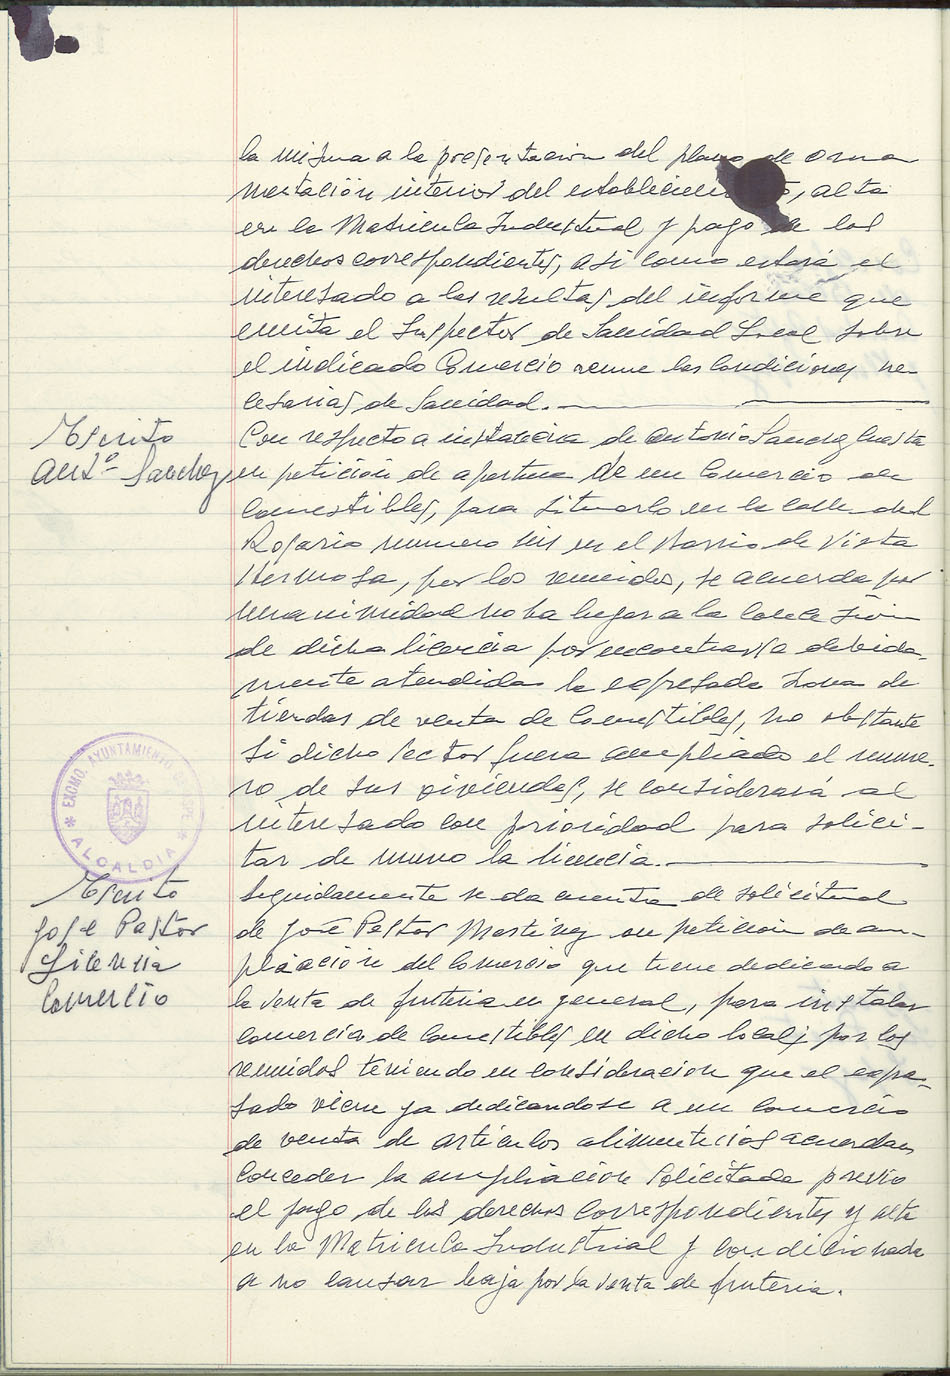 la misma a la presentacion del plano de orna
mentación interior del establecimiento, alta
en la Matricula Industrial y pago de los
derechos correspondientes, asi como estará el
interesado a las resultas del informe que
emita el Inspector de Sanidad Local sobre
el indicado Comercio reune las condiciones ne-
cesarias de Sanidad.
Escrito
Antº Sanchez
Con respecto a instancia de Antonio Sanchez Cuesta
en petición de apertura de un Comercio de
Comestibles, para situarlo en la calle del
Rosario numero seis en el Barrio de Vista
Hermosa, por los reunidos, se acuerda por
unanimidad no ha lugar a la concesión
de dicha licencia por encontrarse debida-
mente atendida la expresada zona de
tiendas de venta de Comestibles, no obstante
si dicho sector fuera ampliado el nume-
ro de sus viviendas, se considerará al
interesado con prioridad para solici-
tar de nuevo la licencia.
EXCMO. AYUNTAMIENTO DE ASPE
* ALCALDIA *
Escrito
José Pastor
Licencia
Comercio
Seguidamente se da cuenta de solicitud
de José Pastor Martinez en petición de am-
pliación del Comercio que tiene dedicado a
la venta de fruteria en general, para instalar
comercio de Comestibles en dicho local, por los
reunidos teniendo en consideracion que el expre-
sado viene ya dedicandose a un comercio
de venta de articulos alimenticios acuerdan
conceder la ampliación solicitada previo
el pago de los derechos correspondientes y alta
en la Matricula Industrial y condicionada
a no causar baja por la venta de fruteria.